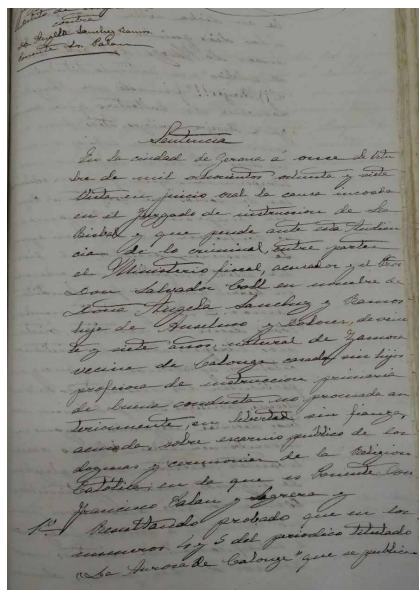 contra
Dª Angela Sanchez Ramos
Ponente Sr. Palau
Sentencia
En la ciudad de Gerona á once de Octu
bre de mil ochocientos ochenta y siete
Vista en juicio oral la causa incoada
en el Juzgado de instruccion de La
Bisbal y que pende ante esta Audien
cia de lo criminal, entre partes
el Ministerio fiscal, acusador y el Proc
Don Salvador Coll en nombre de
Doña Angela Sanchez y Ramos
hija de Anselmo y Dolores, de vein
te y siete años, natural de Zamora
vecina de Calonge casada sin hijos
profesora de instruccion primaria
de buena conducta no procesada an
teriormente, en libertad sin fianza,
acusada, sobre escarnio público de los
dogmas y ceremonias de la Religion
Católica, en la que es Ponente Don
Francisco Palau y
1º Resultando probado que en los
numeros 4 y 5 del periodico titulado
"La Aurora de Calonge" que se publica